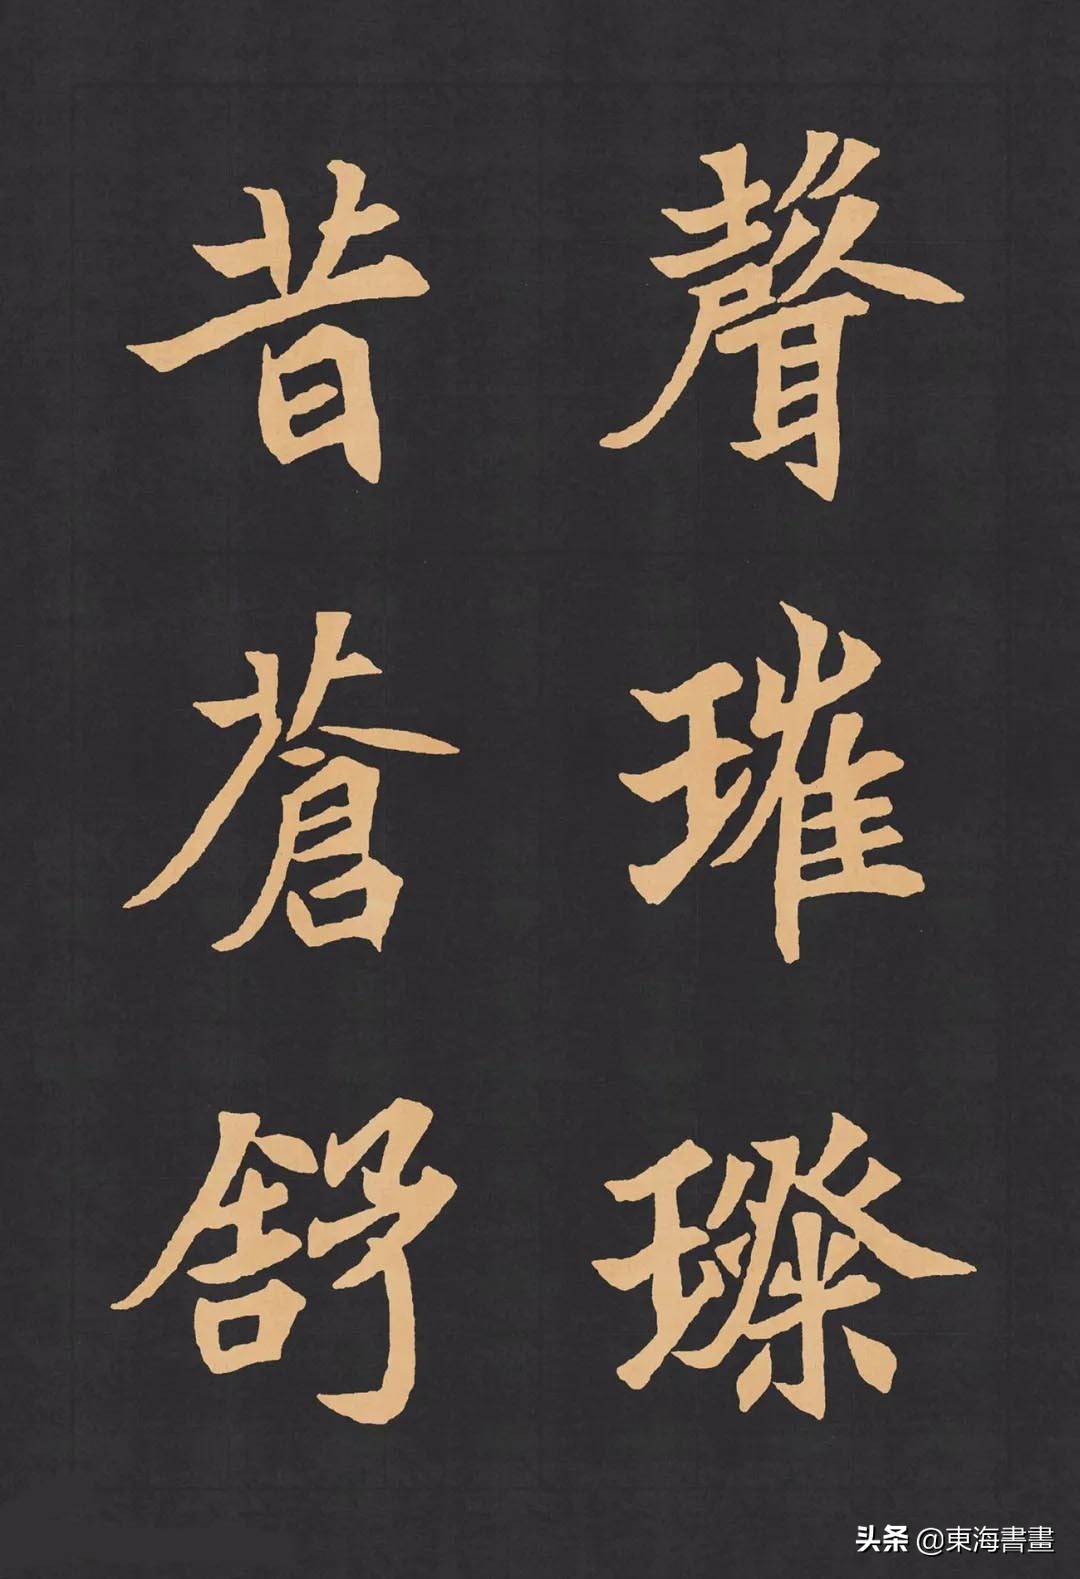 聲璀璨
昔蒼舒
头条 @東海書畫